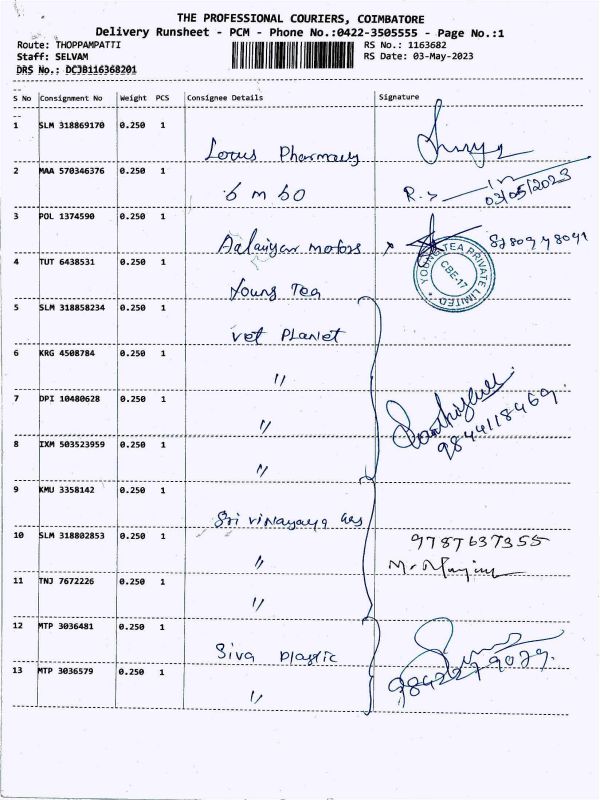 THE PROFESSIONAL COURIERS, COIMBATORE
Delivery Runsheet - PCM - Phone No.:0422-3505555 - Page No.:1
Route: THOPPAMPATTI RS No.: 1163682
Staff: SELVAM RS Date: 03-May-2023
DRS No.: DCJB116368201
S No Consignment No Weight PCS Consignee Details Signature
1 SLM 318869170 0.250 1
Lotus Pharmacy
2 MAA 570346376 0.250 1
6 m 60 R.S 03/05/2023
3 POL 1374590 0.250 1
Aalaiyan motors 8780948091
4 TUT 6438531 0.250 1
Young Tea
YOUNG TEA PRIVATE LIMITED
CBE-17
5 SLM 318858234 0.250 1
vet Planet
6 KRG 4508784 0.250 1
"
7 DPI 10480628 0.250 1
"
9844118469
8 IXM 503523959 0.250 1
"
9 KMU 3358142 0.250 1
Sri vinayaga
10 SLM 318802853 0.250 1
" 9787637355
11 TNJ 7672226 0.250 1
"
12 MTP 3036481 0.250 1
Siva plastic
13 MTP 3036579 0.250 1
" 9842279079